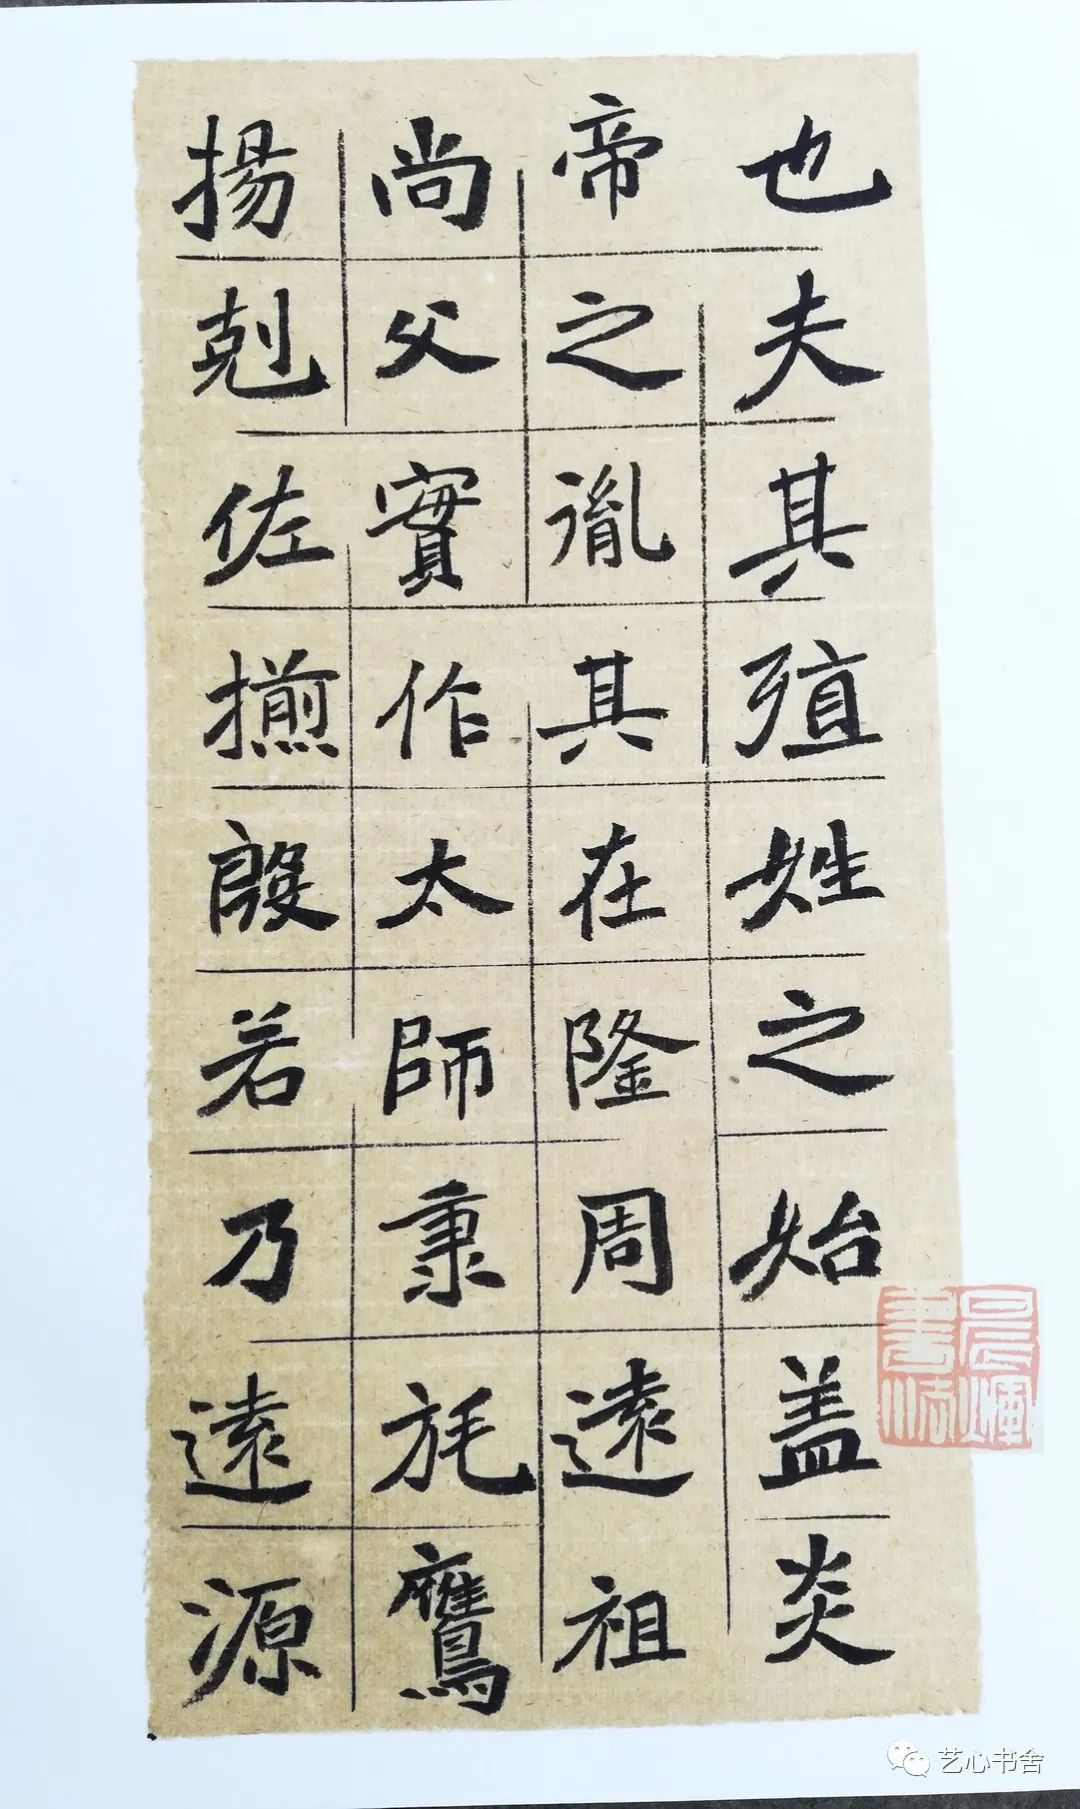 也夫其殖姓之始盖炎
帝之胤其在隆周遠祖
尚父實作太師秉旄鷹
揚剋佐揃殷若乃遠源
艺心书舍